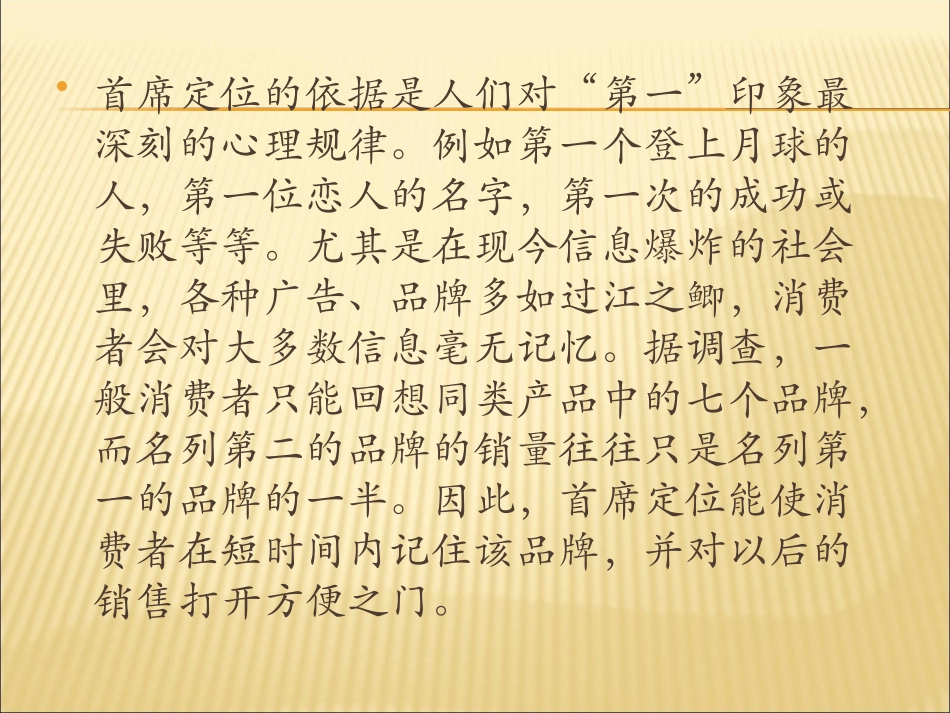 • 首席定位的依据是人们对“第一”印象最
深刻的心理规律。例如第一个登上月球的
人，第一位恋人的名字，第一次的成功或
失败等等。尤其是在现今信息爆炸的社会
里，各种广告、品牌多如过江之鲫，消费
者会对大多数信息毫无记忆。据调查，一
般消费者只能回想同类产品中的七个品牌，
而名列第二的品牌的销量往往只是名列第
一的品牌的一半。因此，首席定位能使消
费者在短时间内记住该品牌，并对以后的
销售打开方便之门。